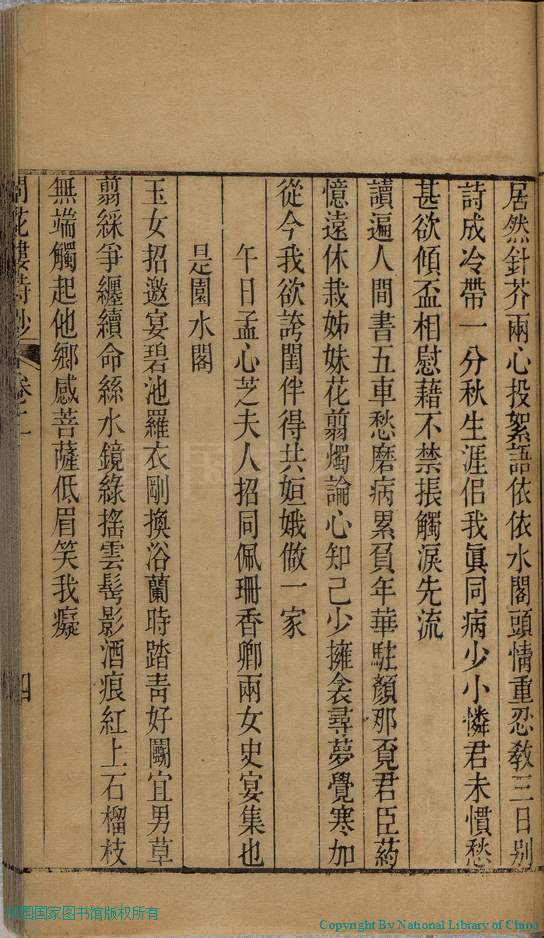 居然針芥兩心投絮語依依水閣頭情重忍教三日別
詩成冷帶一分秋生涯侣我眞同病少小憐君未慣愁
甚欲傾盃相慰藉不禁掁觸淚先流
讀遍人間書五車愁磨病累負年華駐顏那覔君臣葯
憶遠休栽姊妹花翦燭論心知己少擁衾尋夢覺寒加
從今我欲誇閨伴得共姮娥做一家
午日孟心芝夫人招同佩珊香卿兩女史宴集也
是園水閣
玉女招邀宴碧池羅衣剛換浴蘭時踏靑好鬭宜男草
翦綵爭纏續命絲水鏡綠搖雲髩影酒痕紅上石榴枝
無端觸起他鄉感菩薩低眉笑我癡
花樓詩鈔 卷二 四
中国国家图书馆版权所有
Copyright By National Library of China